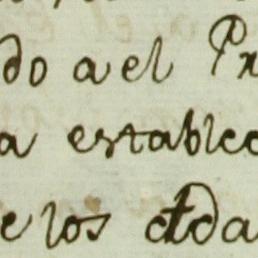 do a el Pr
a establec
e los